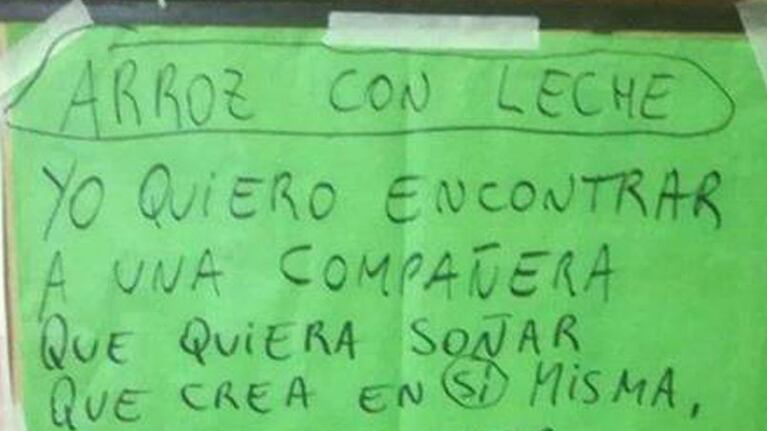 ARROZ CON LECHE
YO QUIERO ENCONTRAR
A UNA COMPAÑERA
QUE QUIERA SOÑAR
QUE CREA EN SÍ MISMA,